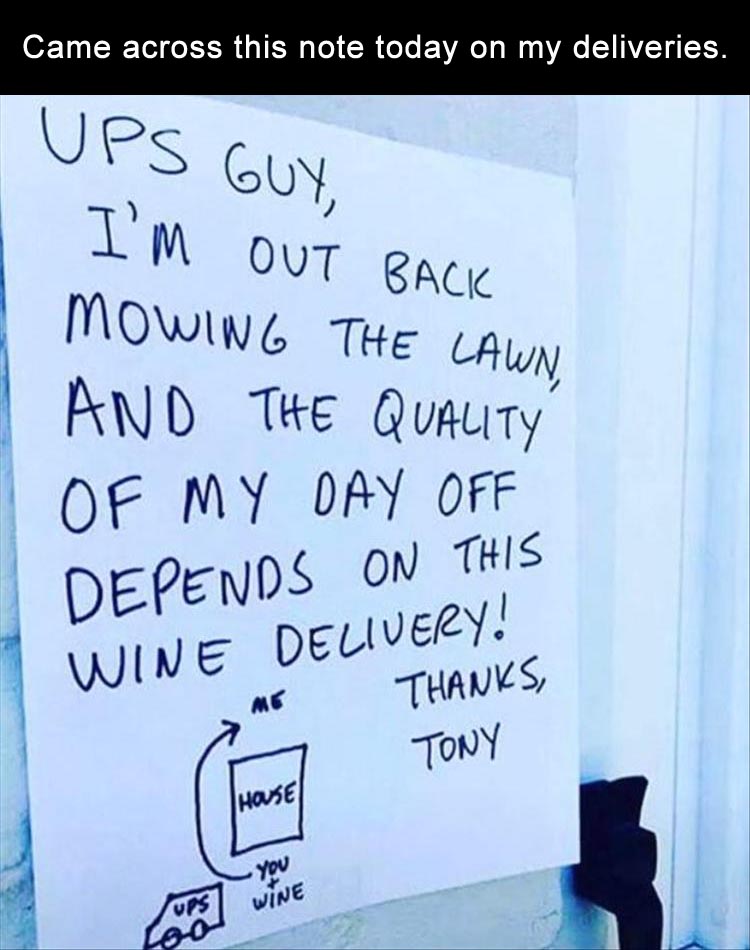 Came across this note today on my deliveries.
UPS GUY,
I'M OUT BACK
MOWING THE LAWN,
AND THE QUALITY
OF MY DAY OFF
DEPENDS ON THIS
WINE DELIVERY!
THANKS,
TONY
ME
HOUSE
YOU
+
WINE
UPS